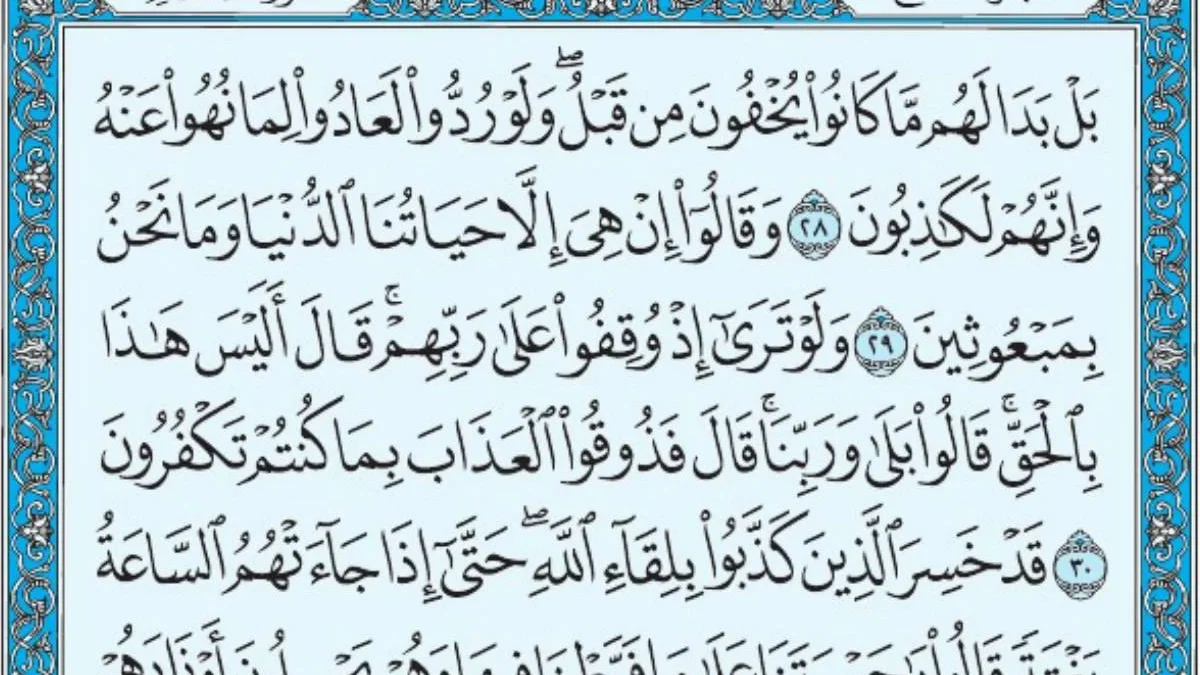 بَلْ بَدَا لَهُم مَّا كَانُوا۟ يُخْفُونَ مِن قَبْلُ ۖ وَلَوْ رُدُّوا۟ لَعَادُوا۟ لِمَا نُهُوا۟ عَنْهُ
وَإِنَّهُمْ لَكَـٰذِبُونَ ٢٨ وَقَالُوٓا۟ إِنْ هِىَ إِلَّا حَيَاتُنَا ٱلدُّنْيَا وَمَا نَحْنُ
بِمَبْعُوثِينَ ٢٩ وَلَوْ تَرَىٰٓ إِذْ وُقِفُوا۟ عَلَىٰ رَبِّهِمْ ۚ قَالَ أَلَيْسَ هَـٰذَا
بِٱلْحَقِّ ۚ قَالُوا۟ بَلَىٰ وَرَبِّنَا ۚ قَالَ فَذُوقُوا۟ ٱلْعَذَابَ بِمَا كُنتُمْ تَكْفُرُونَ
٣٠ قَدْ خَسِرَ ٱلَّذِينَ كَذَّبُوا۟ بِلِقَآءِ ٱللَّهِ ۖ حَتَّىٰٓ إِذَا جَآءَتْهُمُ ٱلسَّاعَةُ